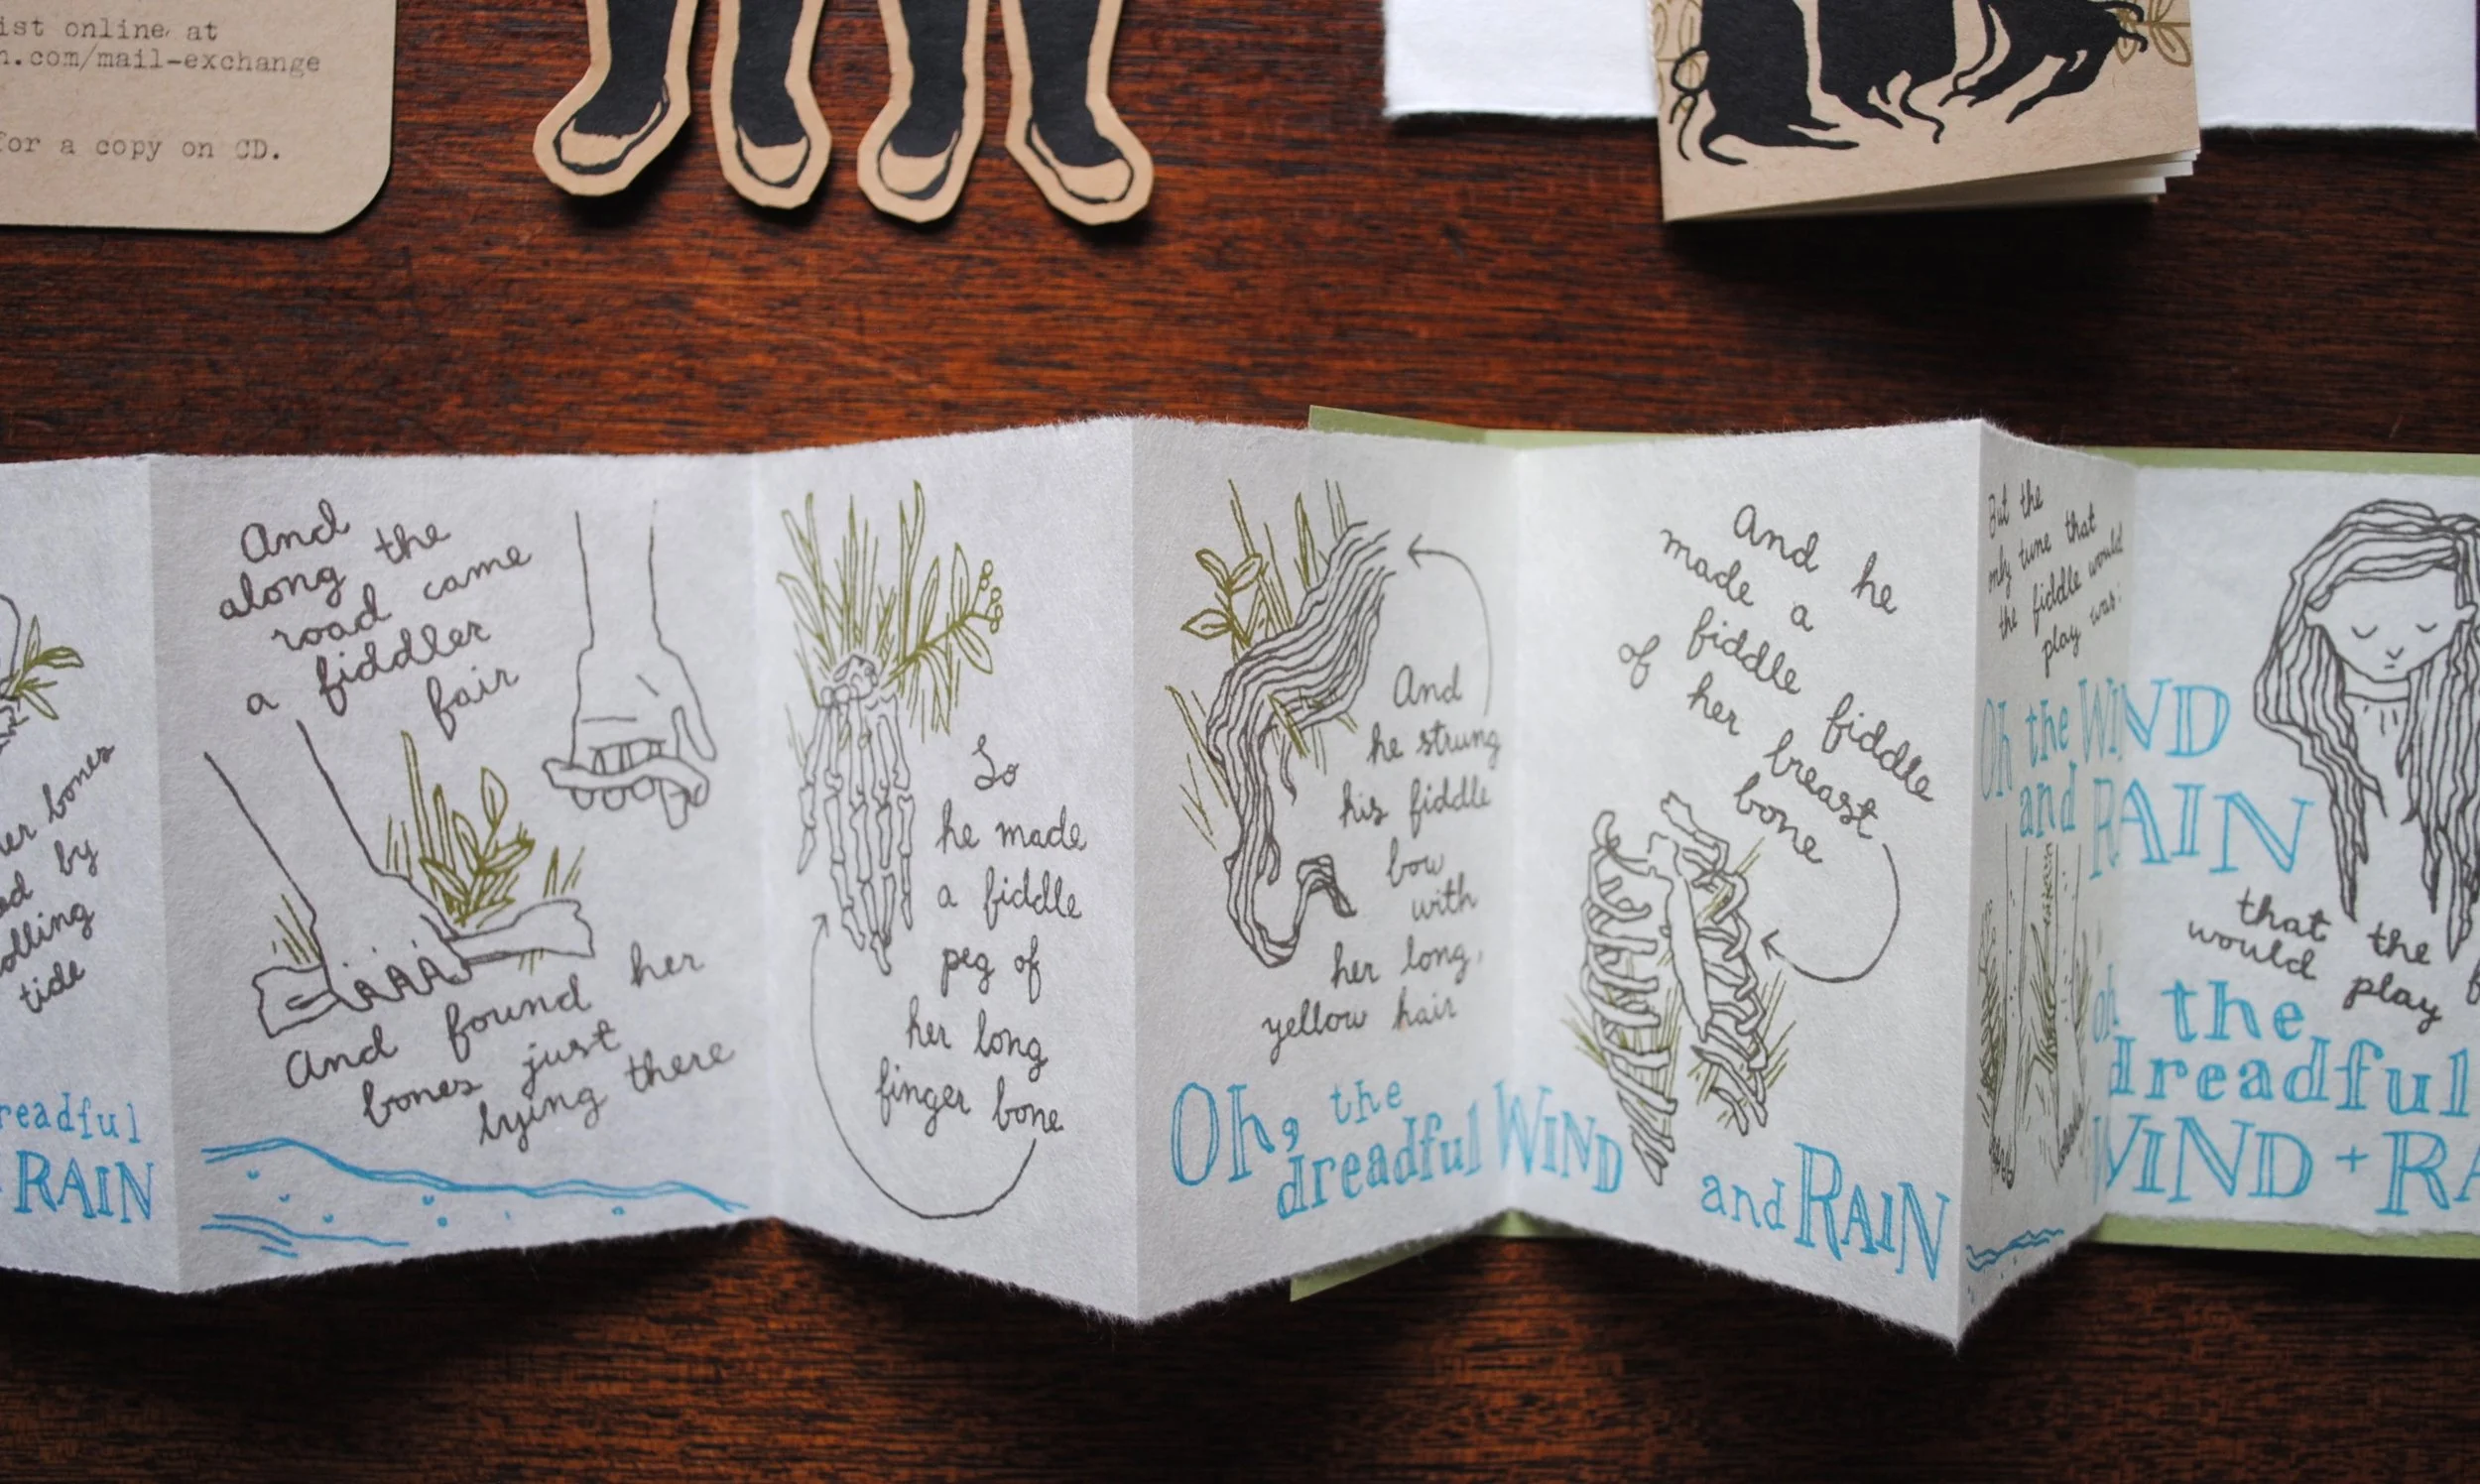 ist online at
n.com/mail-exchange
for a copy on CD.
her bones
by
rolling
tide
readful
RAIN
And
along the
road came
a fiddler
fair
And found her
bones just
lying there
So
he made
a fiddle
peg of
her long
finger bone
And
he strung
his fiddle
bow
with
her long,
yellow hair
Oh, the
dreadful WIND
and RAIN
And he
made a
fiddle fiddle
of her breast
bone
But the
only tune that
the fiddle would
play was:
Oh the WIND
and RAIN
that the
would play
oh the
dreadful
WIND + RA